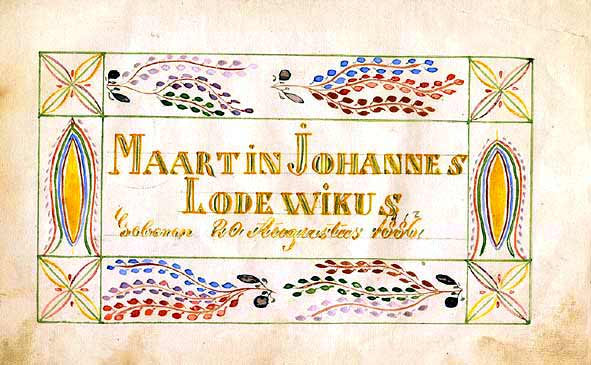 MAARTIN JOHANNES
LODEWIKUS
Geboren 20. Augustus